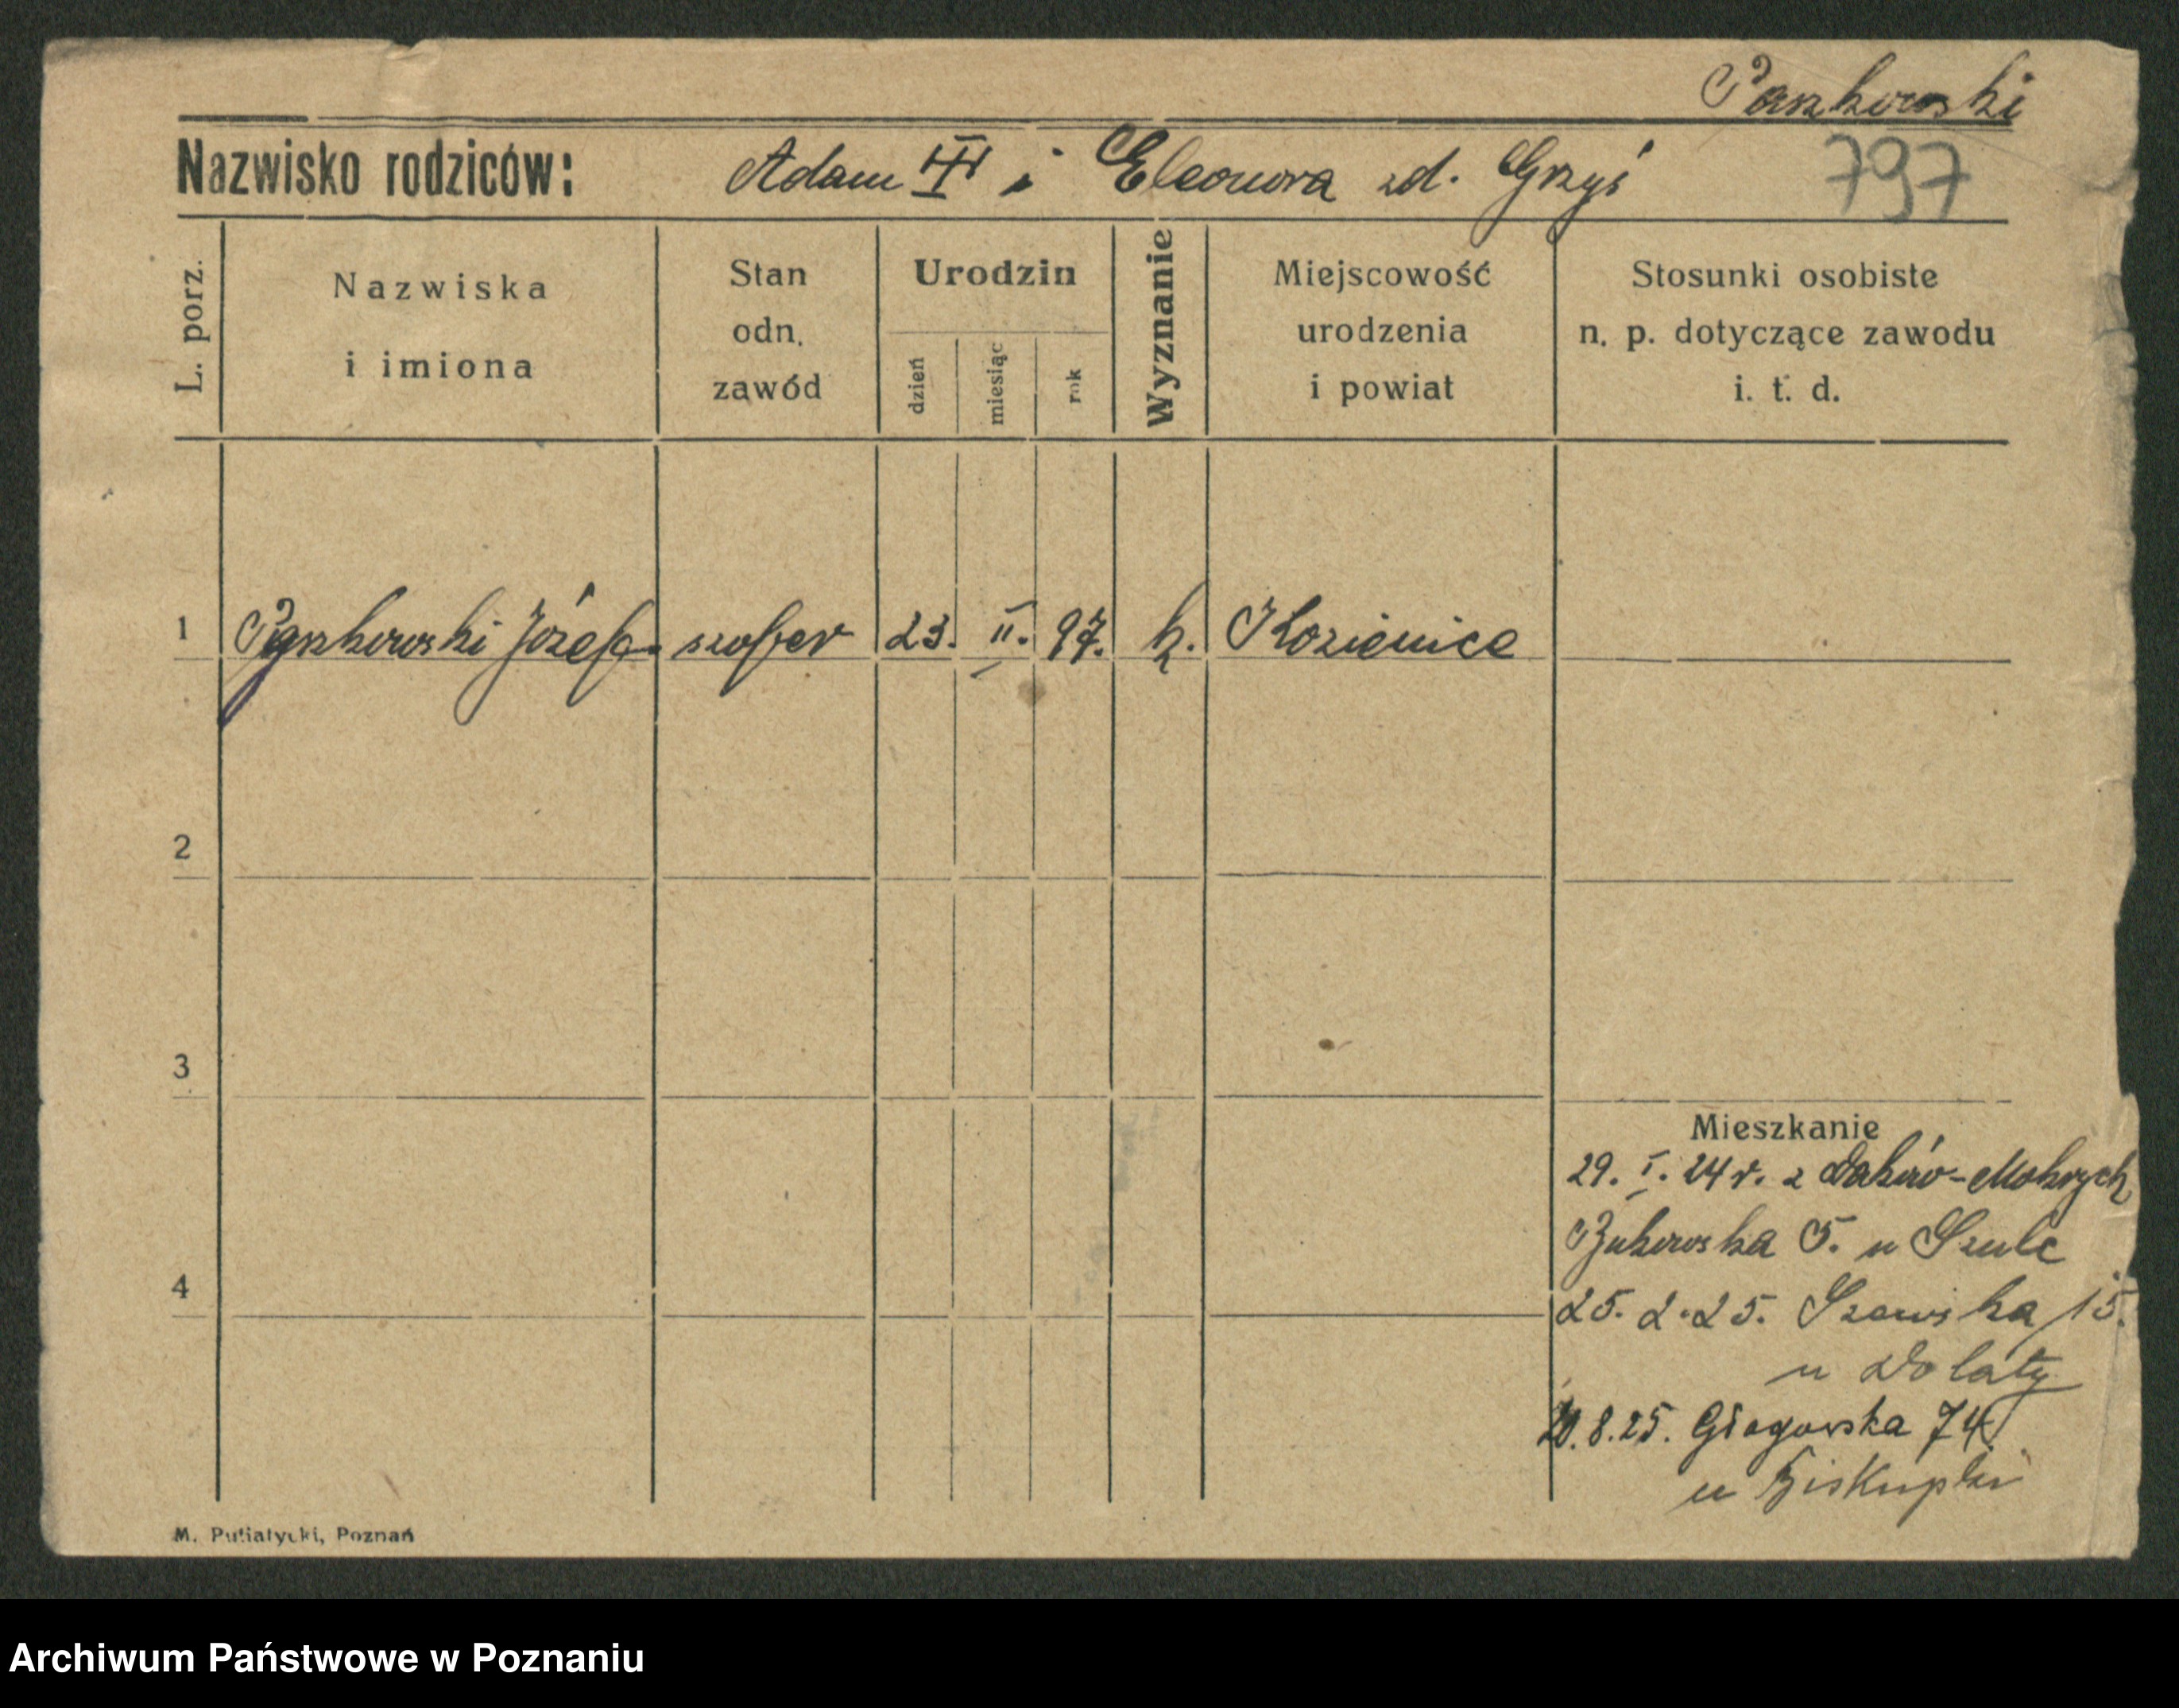 Paszkowski
Nazwisko rodziców: Adam i Eleonora zd. Grzyś
797
L. porz.
Nazwiska
i imiona
Stan
odn.
zawód
Urodzin
dzień
miesiąc
rok
Wyznanie
Miejscowość
urodzenia
i powiat
Stosunki osobiste
n. p. dotyczące zawodu
i. t. d.
1 Paszkowski Józef szofer 23. II. 97. k. Kozienice
2
3
4
Mieszkanie
29. I. 24 r. z Daków-Mokrych
Bukowska 5. u Szulc
25. 2. 25. Szewska 15.
u Dolaty
20. 8. 25. Głogowska 74
u Biskupski
M. Putiatycki, Poznań
Archiwum Państwowe w Poznaniu